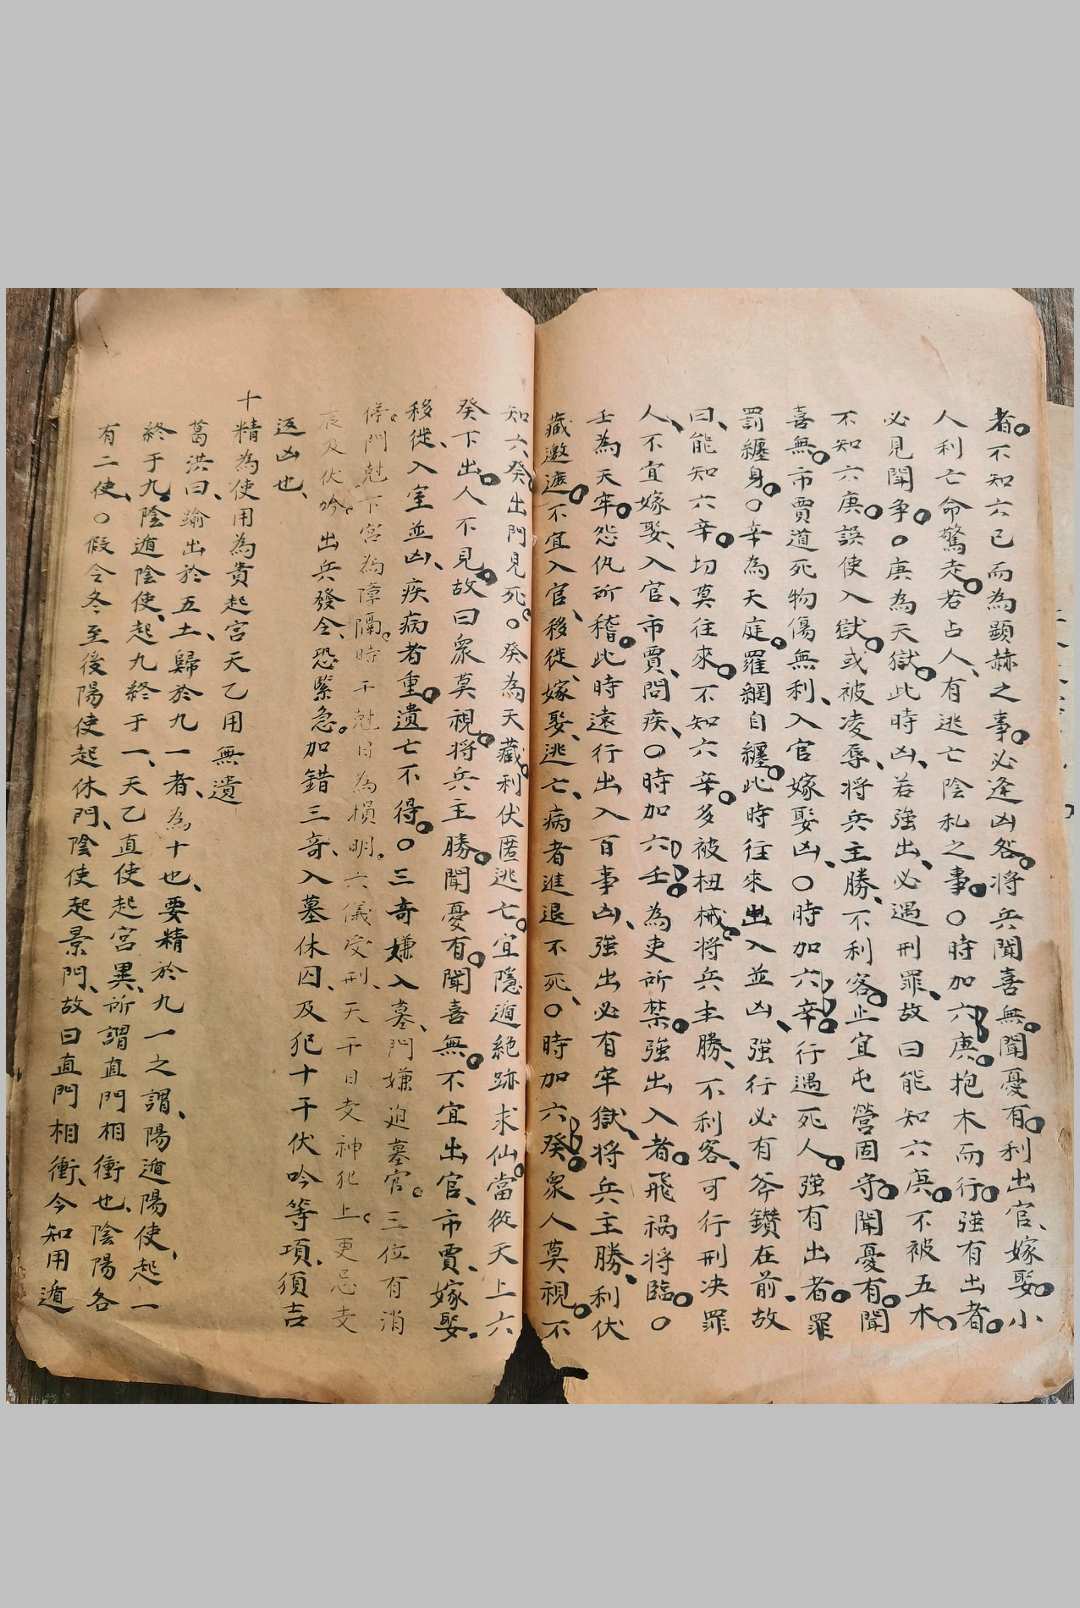 者不知六己而為顯赫之事必逢凶咎將兵聞喜無聞憂有利出官嫁娶小
人利亡命驚走若占人有逃亡陰私之事○時加六庚抱木而行強有出者
必見鬪爭○庚為天獄此時凶若強出必遇刑罪故曰能知六庚不被五木
不知六庚誤使入獄或被凌辱將兵主勝不利客止宜屯營固守聞憂有聞
喜無市賈道死物傷無利入官嫁娶凶○時加六辛行遇死人強有出者罪
罰纏身○辛為天庭羅網自纏此時往來出入並凶強行必有斧鑽在前故
曰能知六辛切莫往來不知六辛多被杻械將兵主勝不利客可行刑决罪
人不宜嫁娶入官市賈問疾○時加六壬為吏所禁強出入者飛禍將臨○
壬為天牢怨仇所稽此時遠行出入百事凶強出必有牢獄將兵主勝利伏
藏邀遮不宜入官移徙嫁娶逃亡病者進退不死○時加六癸衆人莫視不
知六癸出門見死○癸為天藏利伏匿逃亡宜隱遁絕跡求仙當從天上六
癸下出人不見故曰衆莫視將兵主勝聞憂有聞喜無不宜出官市賈嫁娶
移徙入室並凶疾病者重遺亡不得○三奇嫌入墓門嫌迫墓官三位有消
停門尅下宮為障隔時干尅日為損明六儀受刑天干日支神犯上更忌支
辰及伏吟出兵發令恐緊急加錯三奇入墓休囚及犯十干伏吟等項須吉
返凶也
十精為使用為貴起宮天乙用無遺
葛洪曰踰出於五土歸於九一者為十也要精於九一之謂陽遁陽使起一
終于九陰遁陰使起九終于一天乙直使起宮異所謂直門相衝也陰陽各
有二使○假令冬至後陽使起休門陰使起景門故曰直門相衝今知用遁